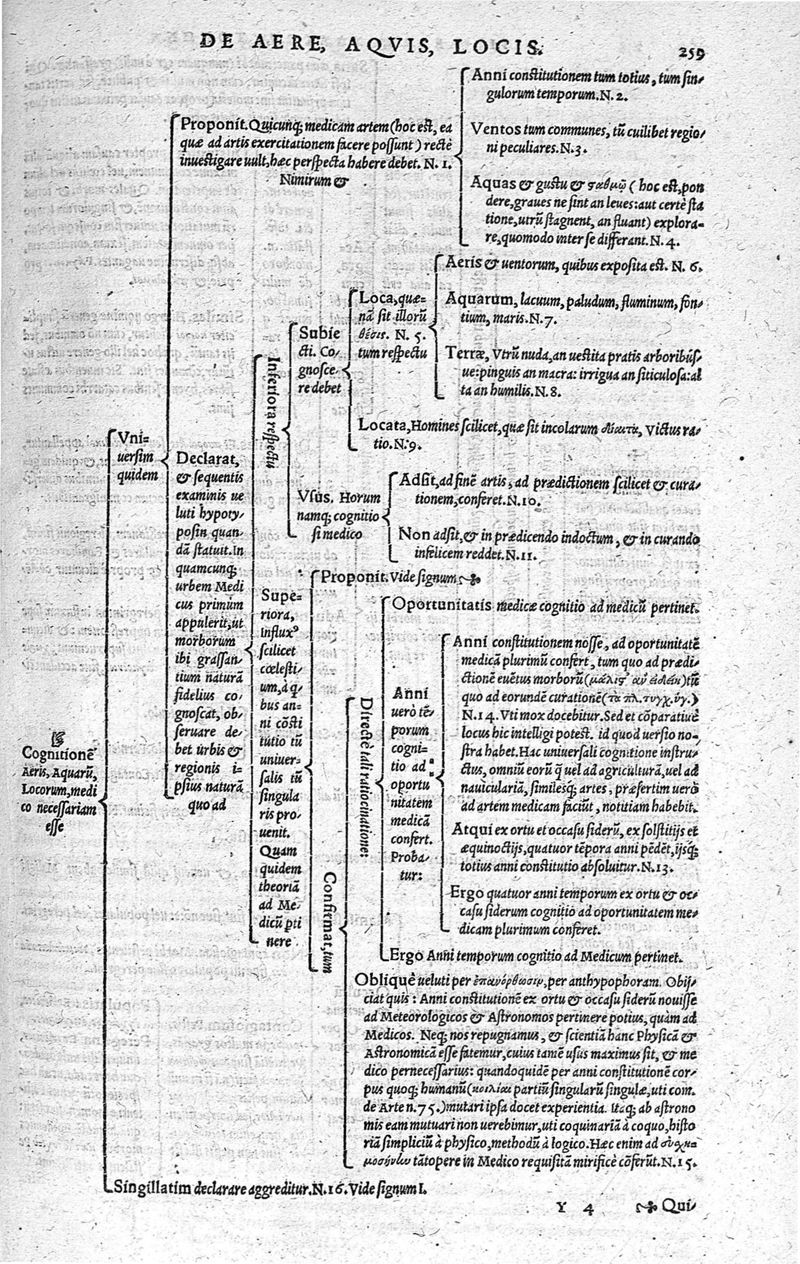 DE AERE, AQVIS, LOCIS.
259
Proponit. Quicunq; medicam artem (hoc est, ea
quæ ad artis exercitationem facere possunt) rectè
inuestigare uult, hæc perspecta habere debet. N. 1.
Nimirum &
Anni constitutionem tum totius, tum sin-
gulorum temporum. N. 2.
Ventos tum communes, tū cuilibet regio-
ni peculiares. N. 3.
Aquas & gustu & σαθμῷ (hoc est, pon
dere, graues ne sint an leues: aut certè sta
tione, utrū stagnent, an fluant) explora-
re, quomodo inter se differant. N. 4.
Vni-
uersim
quidem
Declarat,
& sequentis
examinis ue
luti hypoty-
posin quan-
dā statuit. In
quamcunq;
urbem Medi
cus primùm
appulerit, ut
morborum
ibi grassan-
tium naturā
fidelius co-
gnoscat, ob-
seruare de-
bet urbis &
regionis i-
psius naturā
quo ad
Inferiora respectu
Subie
cti. Co-
gnosce-
re debet
Loca, quæ-
nā sit illorū
θέσις. N. 5.
tum respectu
Aeris & uentorum, quibus exposita est. N. 6.
Aquarum, lacuum, paludum, fluminum, fon-
tium, maris. N. 7.
Terræ, Vtrū nuda, an uestita pratis arboribus-
ue: pinguis an macra: irrigua an siticulosa: al
ta an humilis. N. 8.
Locata, Homines scilicet, quæ sit incolarum δίαιτα, victus ra-
tio. N. 9.
Vsus. Horum
namq; cognitio
si medico
Adsit, ad finē artis, ad prædictionem scilicet & cura-
tionem, conferet. N. 10.
Non adsit, & in prædicendo indoctum, & in curando
infelicem reddet. N. 11.
Supe-
riora,
influx⁹
scilicet
cœlesti-
um, à q-
bus an-
ni cōsti
tutio tū
uniuer-
salis tū
singula
ris pro-
uenit.
Quam
quidem
theoriā
ad Me-
dicū pti
nere
Proponit. Vide signum
Confirmat, tum
Directè tali ratiocinatione:
Oportunitatis medicæ cognitio ad medicū pertinet.
Anni
uerò tē-
porum
cogni-
tio ad
oportu-
nitatem
medicā
confert.
Proba-
tur:
Anni constitutionem nosse, ad oportunitatē
medicā plurimū confert, tum quo ad prædi-
ctionē euētus morborū (μάλιστ' ἂν εἰδείη) tū
quo ad eorundē curationē (τὰ πλ. τυγχ. ὑγ.)
N. 14. Vti mox docebitur. Sed et cōparatiuè
locus hic intelligi potest. id quod uersio no-
stra habet. Hac uniuersali cognitione instru-
ctus, omniū eorū q̄ uel ad agriculturā, uel ad
nauiculariā, similesq; artes, præsertim uerò
ad artem medicam faciūt, notitiam habebit.
Atqui ex ortu et occasu siderū, ex solstitijs et
æquinoctijs, quatuor tēpora anni pēdēt, ijsq;
totius anni constitutio absoluitur. N. 13.
Ergo quatuor anni temporum ex ortu & oc-
casu siderum cognitio ad oportunitatem me-
dicam plurimum confert.
Ergo Anni temporum cognitio ad Medicum pertinet.
Obliquè ueluti per ἐπανόρθωσιν, per anthypophoram. Obij-
ciat quis: Anni constitutionē ex ortu & occasu siderū nouisse
ad Meteorologicos & Astronomos pertinere potius, quàm ad
Medicos. Neq; nos repugnamus, & scientiā hanc Physicā &
Astronomicā esse fatemur, cuius tamē usus maximus sit, & me
dico pernecessarius: quandoquidē per anni constitutionē cor-
pus quoq; humanū (κοιλίαι partiū singularū singulæ, uti com.
de Arte n. 75.) mutari ipsa docet experientia. Itaq; ab astrono
mis eam mutuari non uerebimur, uti coquinariā à coquo, histo
riā simpliciū à physico, methodū à logico. Hæc enim ad
μοσύνην tātopere in Medico requisitā mirificè cōferūt. N. 15.
Cognitionē
Aeris, Aquarū,
Locorum, medi
co necessariam
esse
Singillatim declarare aggreditur. N. 16. Vide signum I.
Y 4
Qui